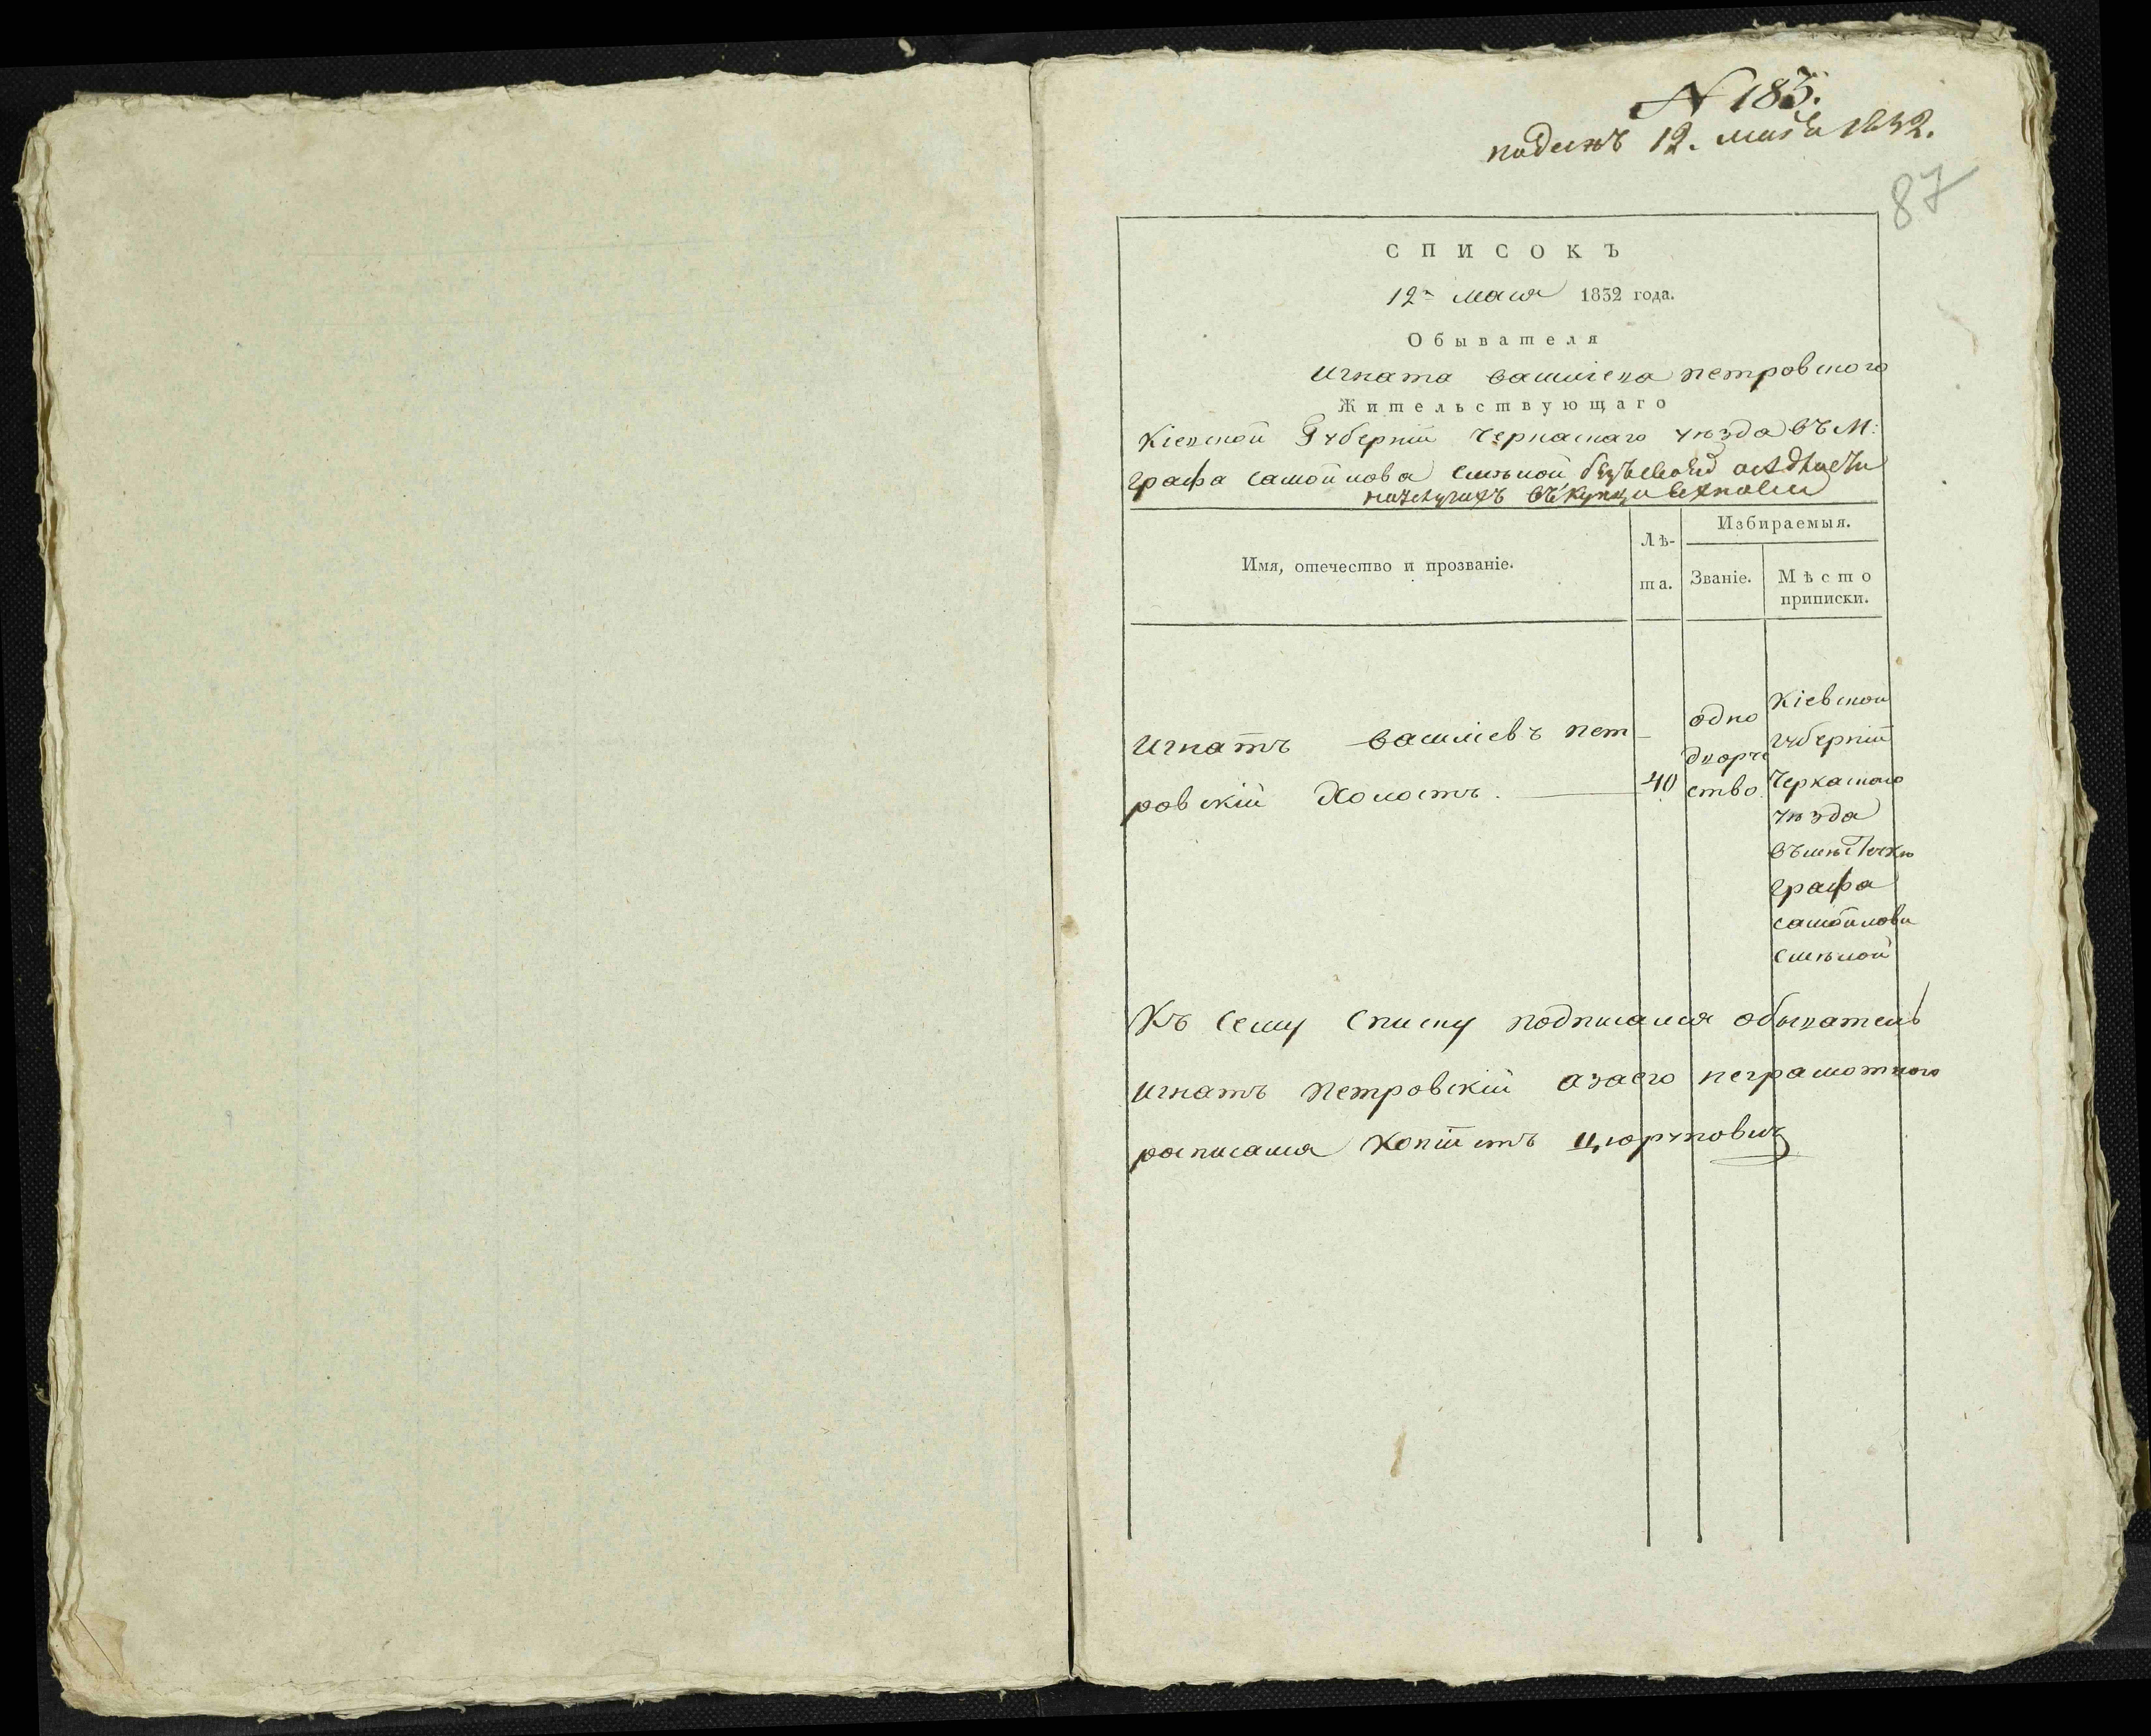 N 185.
поданъ 12. маія 1832.
87
СПИСОКЪ
12го маія 1832 года.
Обывателя
Игната василіева петровского
Жительствующаго
Кіевской Губерніи Черкаскаго уѣзда въ М:
графа самойлова смѣлой безъ осѣдлости
Имя, отечество и прозваніе.
Лѣ-
та.
Избираемыя.
Званіе.
Мѣсто
приписки.
Игнатъ василіевъ пет-
ровскій холостъ.
40
одно
дворче
ство.
Кіевской
губерніи
Черкаского
уѣзда
въ мѣстечкѣ
графа
самойлова
смѣлой
Къ сему списку подписался обыватель
Игнатъ Петровскій а за его неграмотного
росписался копіистъ